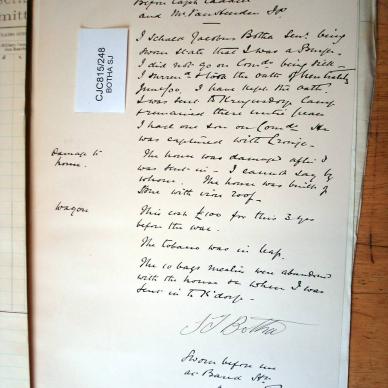 Before Capt
and Mr JP.
I Schalk Jacobus Botha Senr. being
sworn state that I was a Burgher
I did not go on Comdo being sick –
I surrend & took the oath of neutrality
June/00. I have kept the oath.
I was sent to Krugersdorp Camp
& remained there until peace
I had one son on Comdo He
was captured with Cronje –
Damage to
house.
The house was damaged after I
was sent in – I cannot say by
whom. The house was built of
stone with iron roof –
Wagon
This cost £100 for this 3 yrs
before the war.
The tobacco was in leaf.
The 10 bags mealies were abandoned
with the house when I was
sent in to K'dorp –
SJ Botha
Sworn before me
at Band
CJC815/248
BOTHA SJ